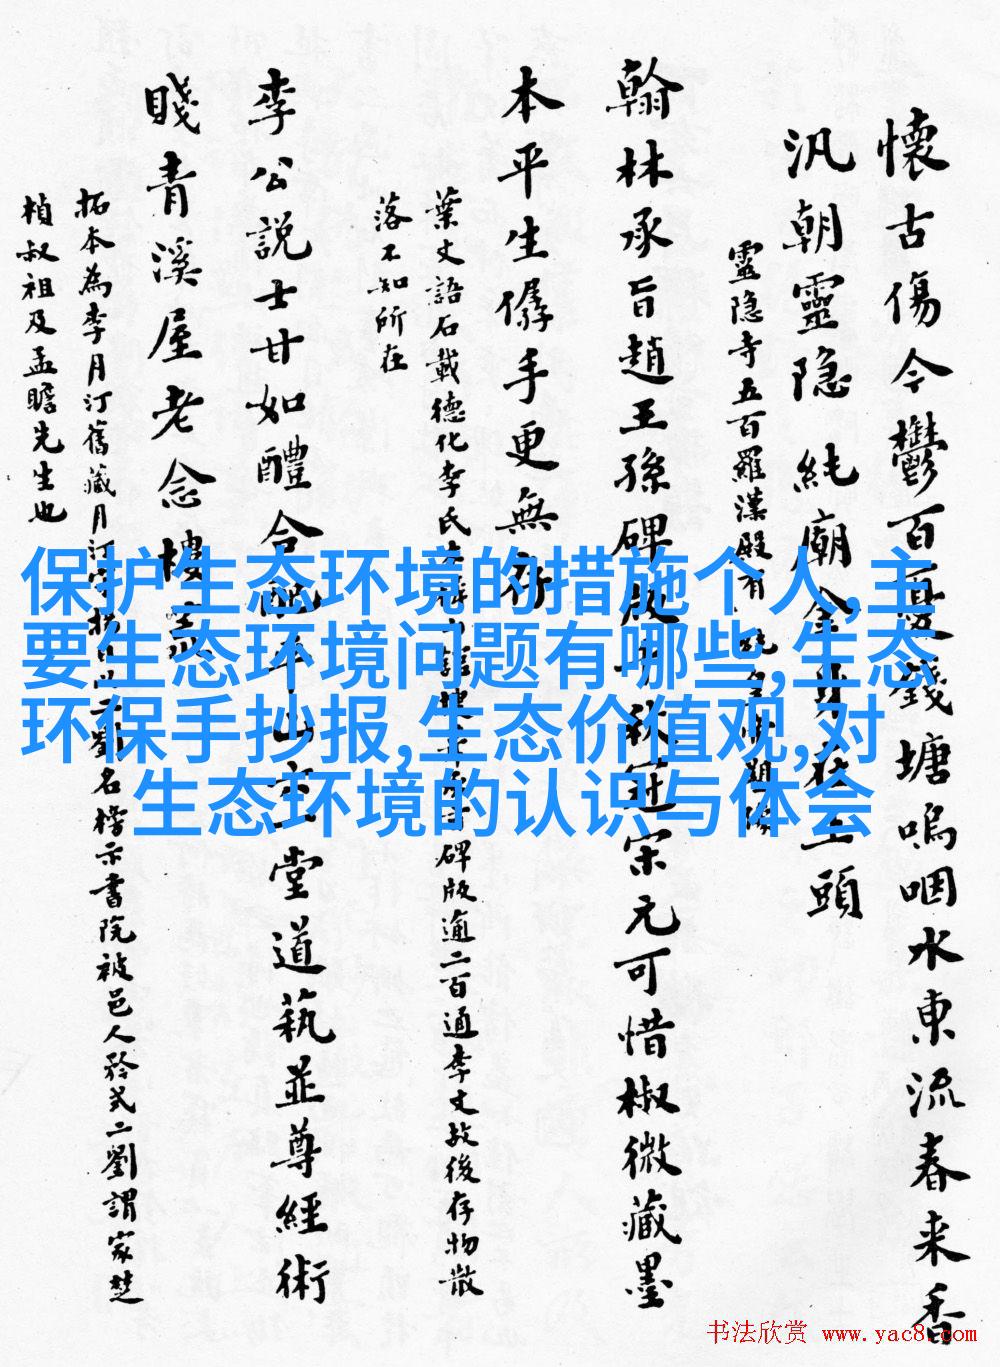 懷古傷今鬱百憂錢塘嗚咽水東流春来香
汎朝靈隐純廟金身在上頭
靈隐寺五百羅漢殿有
翰林承旨趙王孫碑版
秋莚宋元可惜椒微藏墨
本平生僝手更無存
葉文語石載德化李氏
碑版逾二百通李文故後存物散
落不知所在
李公説士甘如醴合配平山六一堂道蓺並尊經術
賤青溪屋老念樓
拓本為李月汀舊藏月汀
劉名榜示書院被邑人矜式二劉謂家楚
楨叔祖及孟瞻先生也
保护生态环境的措施个人,主
要生态环境问题有哪些,生态
环保手抄报,生态价值观,对
生态环境的认识与体会
书法欣赏 www.yac8.com